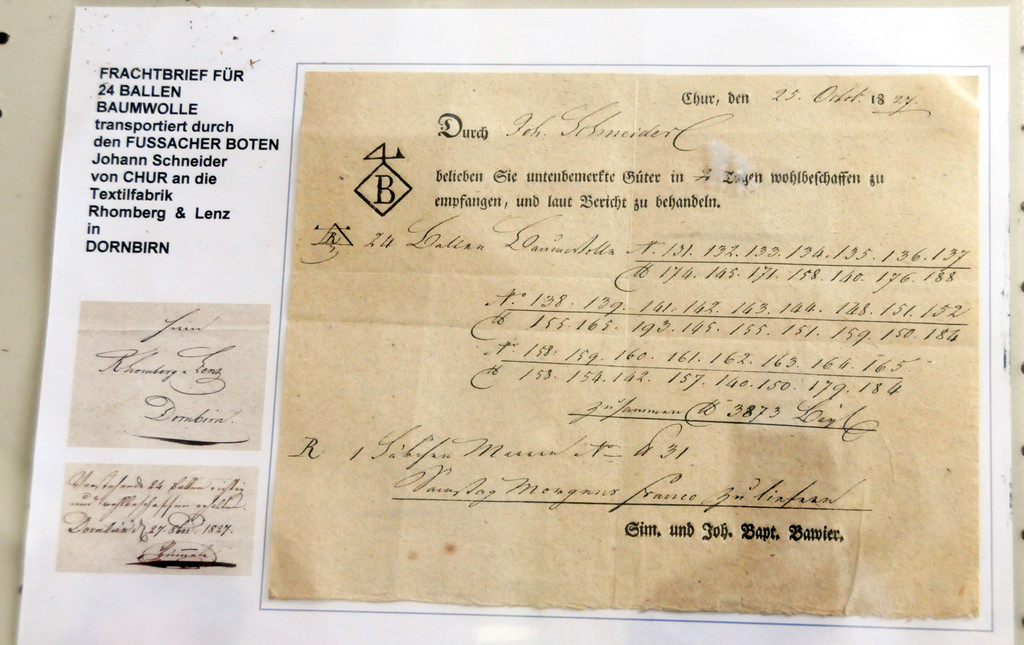 FRACHTBRIEF FÜR
24 BALLEN
BAUMWOLLE
transportiert durch
den FUSSACHER BOTEN
Johann Schneider
von CHUR an die
Textilfabrik
Rhomberg & Lenz
in
DORNBIRN
Herrn
Rhomberg & Lenz
Dornbirn.
Vorstehende 24 Ballen richtig
und wohlbeschaffen erhalten
Dornbirn 27 8br 1827.
Chur, den 25. Octob. 1827.
Durch Joh. Schneider
B
belieben Sie untenbemerkte Güter in 2 Tagen wohlbeschaffen zu
empfangen, und laut Bericht zu behandeln.
R 24 Ballen Baumwolle N. 131. 132. 133. 134. 135. 136. 137
174. 145. 171. 158. 140. 176. 188
No. 138. 139. 141. 142. 143. 144. 148. 151. 152
155. 165. 193. 145. 155. 151. 159. 150. 184
No. 158. 159. 160. 161. 162. 163. 164. 165
158. 154. 142. 157. 140. 150. 179. 184
zusammen 3873
R 1 31
Samstag Morgens franco zu liefern
Sim. und Joh. Bapt. Bawier.